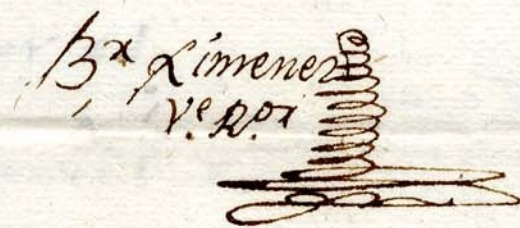 Bx Ximenez
Ve. Ror